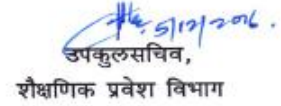 5/12/2016.
उपकुलसचिव,
शैक्षणिक प्रवेश विभाग